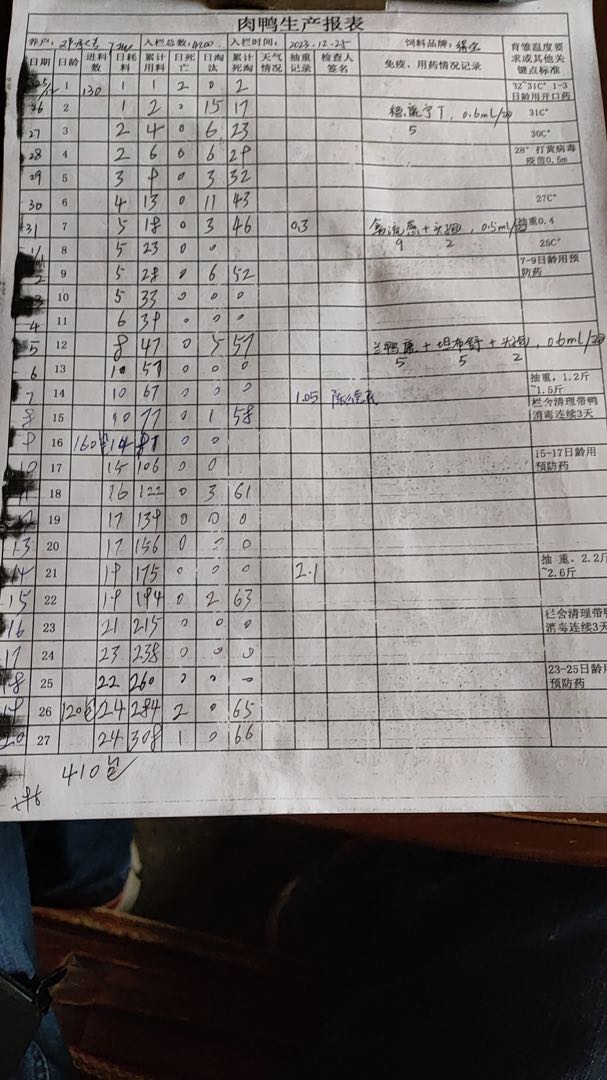 肉鸭生产报表
养户: 入栏总数: 4200 入栏时间: 2023.12.25 饲料品牌:
日期 日龄 进料数 日耗料 累计用料 日死亡 日淘汰 累计死淘 天气情况 抽重记录 检查人签名 免疫、用药情况记录 育雏温度要求或其他关键点标准
25/12 1 130 1 1 2 0 2 32~31C° 1-3日龄用开口药
26 2 1 2 0 15 17 0.6ml/ 31C°
27 3 2 4 0 6 23 5 30C°
28 4 2 6 0 6 29 28° 打黄病毒疫苗0.5m
29 5 3 9 0 3 32
30 6 4 13 0 11 43 27C°
31 7 5 18 0 3 46 0.3 禽流感+ , 0.5ml/ 抽重0.4
1/1 8 5 23 0 0 9 2 25C°
2 9 5 28 0 6 52 7-9日龄用预防药
3 10 5 33 0 0 0
4 11 6 39 0 0 0
5 12 8 47 0 5 57 + 坦布舒 + , 0.6ml/
6 13 10 57 0 0 0 5 5 2
7 14 10 67 0 0 0 1.05 抽重，1.2斤~1.5斤
8 15 10 77 0 1 58 栏舍清理带鸭消毒连续3天
9 16 160包 14 91 0 0
10 17 15 106 0 0 15-17日龄用预防药
11 18 16 122 0 3 61
12 19 17 139 0 0 0
13 20 17 156 0 0 0
14 21 19 175 0 0 0 2.1 抽重，2.2斤~2.6斤
15 22 19 194 0 2 63
16 23 21 215 0 0 0 栏舍清理带鸭消毒连续3天
17 24 23 238 0 0 0
18 25 22 260 0 0 0 23-25日龄用预防药
19 26 120包 24 284 2 0 65
20 27 24 308 1 0 66
410包